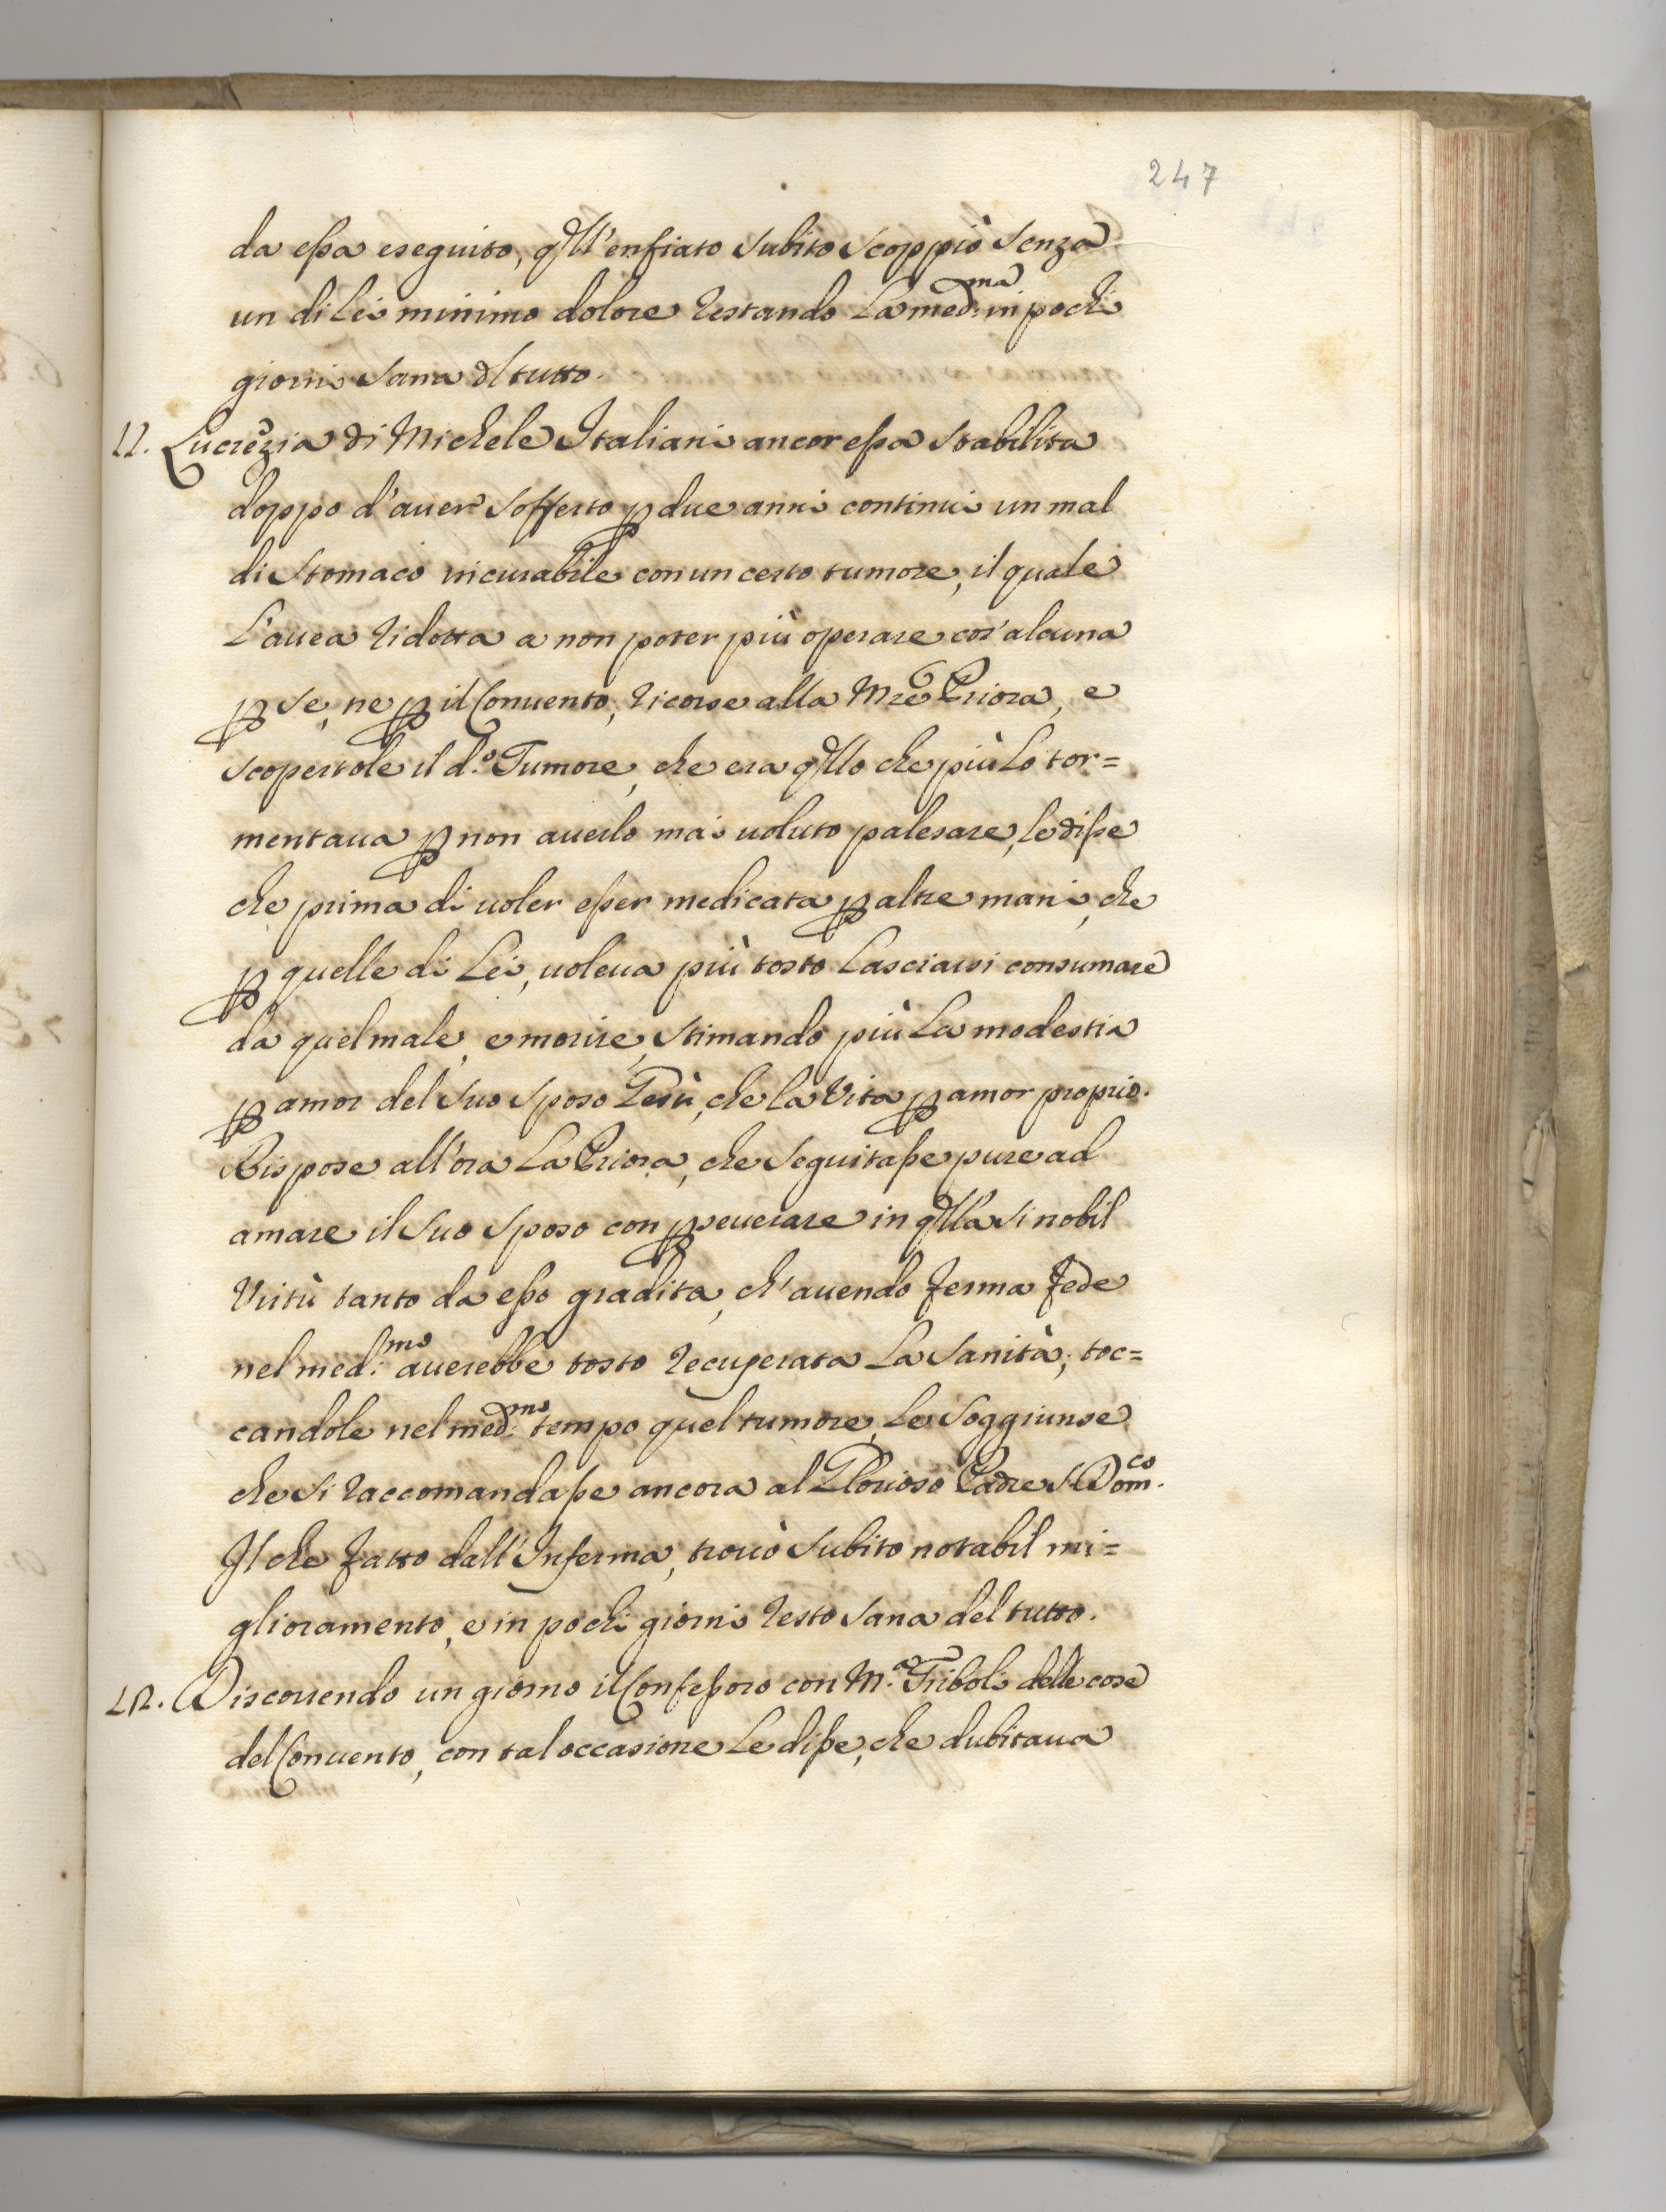 247
da essa eseguito, qll'enfiato subito scoppiò senza
un di Lei minimo dolore restando La med:ma in pochi
giorni sana dl tutto.
11. Lucrezia di Michele Italiani ancor essa stabilita
doppo d'auer sofferto p due anni continui un mal
di stomaco incurabile con un certo tumore, il quale
L'auea ridotta a non poter più operare cos'alcuna
p se, ne p il Conuento, ricorse alla Mre Priora, e
scopertole il d.o Tumore, che era qllo che più La tor=
mentaua p non auerlo mai uoluto palesare, le disse
che prima di uoler esser medicata p altre mani, che
p quelle di Lei, uoleua più tosto Lasciarsi consumare
da quel male, e morire, stimando più La modestia
p amor del suo sposo Gesù, che la Vita p amor proprio.
Rispose all'ora La Priora, che seguitasse pure ad
amare il suo sposo con pseuerare in qlla si nobil
Virtù tanto da esso gradita, ch'auendo ferma fede
nel med:mo auerebbe tosto recuperata La sanità; toc=
candole nel med:mo tempo quel tumore, Le soggiunse
che si raccomandasse ancora al Glorioso Padre S. Dom.co
Il che fatto dall'Inferma, trouò subito notabil mi=
glioramento, e in pochi giorni restò sana del tutto.
12. Discorrendo un giorno il Confessoro con M.a Triboli delle cose
del Conuento, con tal occasione Le disse, che dubitaua